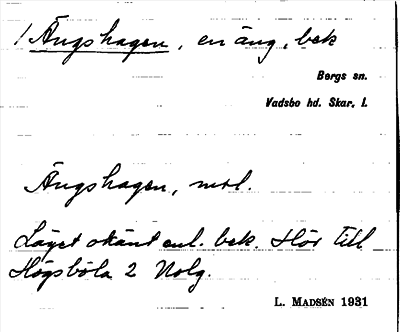 1 Ängshagen, en äng, bek
Bergs sn.
Vadsbo hd. Skar. l.
Ängshagen, mtrl.
Läget okänt enl. bek. Hör till
Högsböla 2 Nolg.
L. Madsén 1931